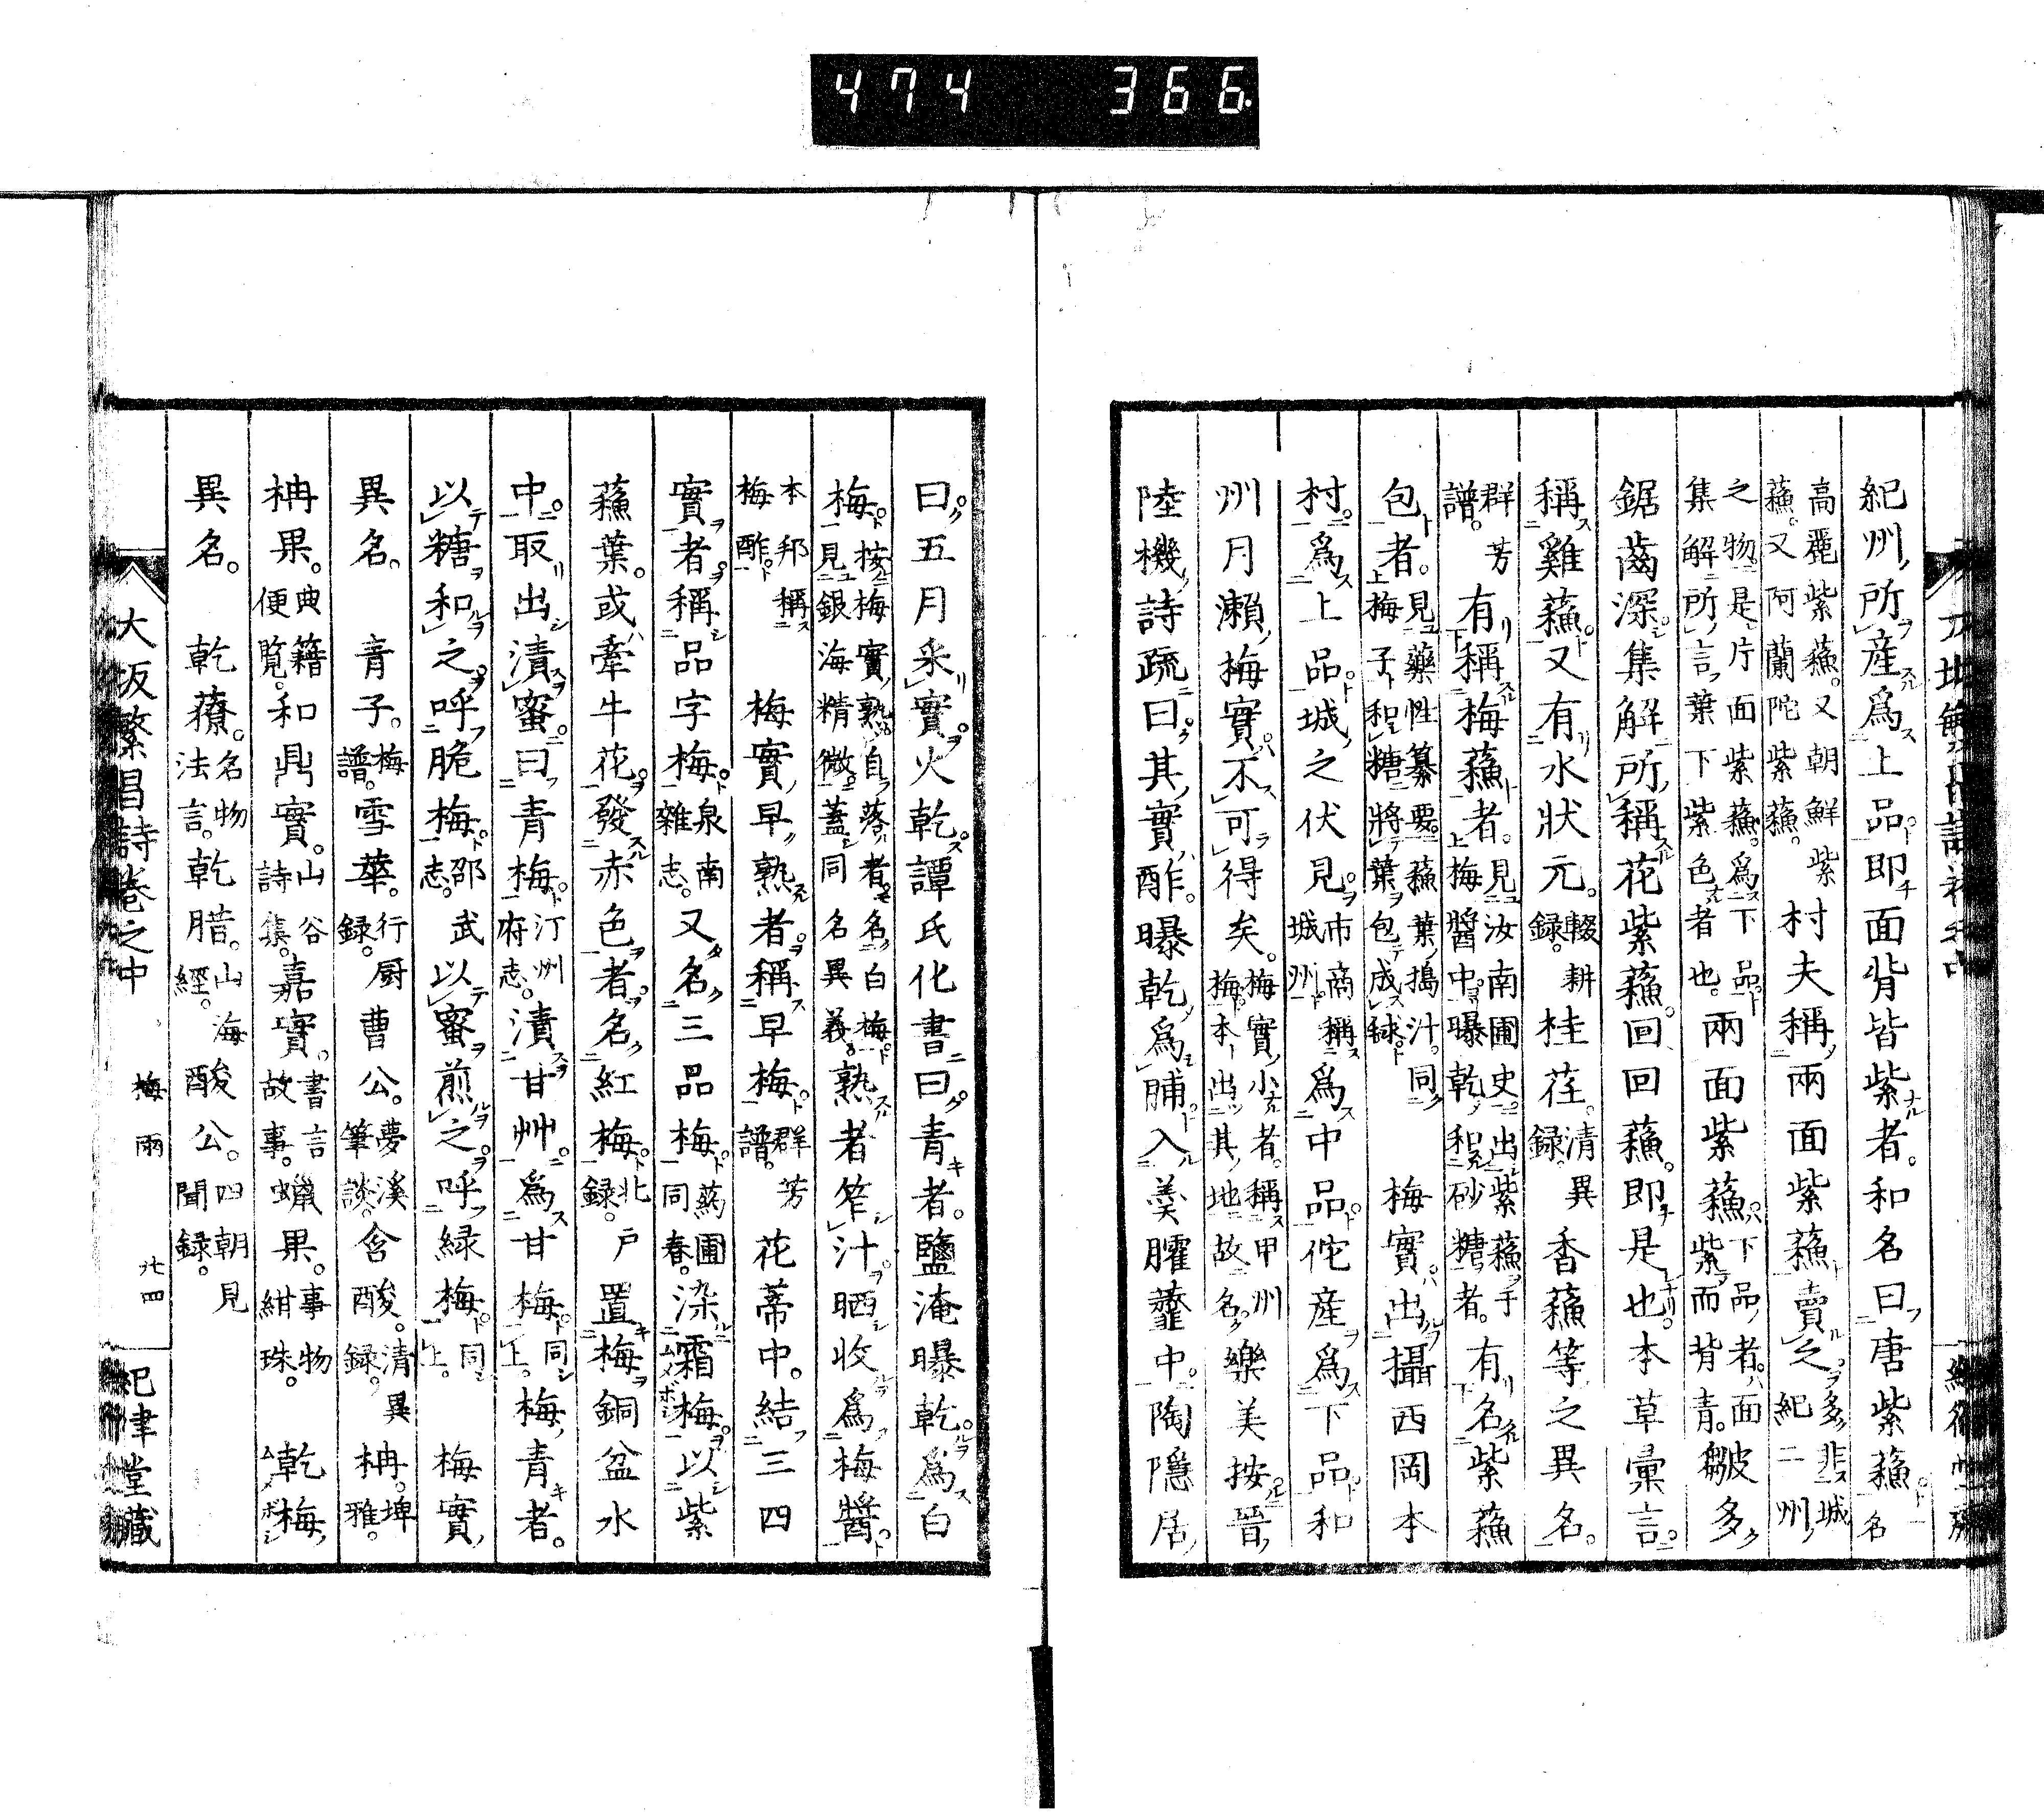 474 366
紀州所產爲上品即面背皆紫者。和名曰唐紫蘓名
高麗紫蘓。又朝鮮紫
蘓。又阿蘭陀紫蘓。
村夫稱兩面紫蘓賣之多。悲城
紀二州
之物是片面紫蘓。爲下品
集解所言葉下紫色者也。
兩面紫蘓下品者。面
紫而背青。
皺多
鋸齒深集解所稱花紫蘓。回回蘓。即是也本草彙言。
稱雞蘓又有水狀元。
輟耕
録。
桂荏。
清異
録。
香蘓等之異名。
群芳
譜。
有稱梅蘓者。
見汝南圃史出紫蘓手
梅醬中曝乾和砂糖者。
有名紫蘓
包者。
見藥性纂要。蘓葉搗汁。同
梅子和糖將葉包成毬
梅實出攝西岡本
村爲上品城之伏見
市商稱
城州
爲中品佗產爲下品和
州月瀨梅實不可得矣。
梅實小者。稱甲州
梅本出其地故名
樂美按晉
陸機詩疏曰其實酢。曝乾爲脯入羮臛虀中。陶隱居
曰五月采實火乾譚氏化書曰青者。鹽淹曝乾爲白
梅
按梅實熟自落者名白梅
見銀海精微蓋同名異義。
熟者笮汁晒收爲梅醬
本邦稱
梅酢
梅實早熟者稱早梅
群芳
譜。
花蒂中。結三四
實者稱品字梅
泉南
雜志。
又名三品梅
葯圃
同春。
染霜梅以紫
蘓葉。或牽牛花發赤色者名紅梅
北戶
録。
置梅銅盆水
中。取出漬蜜曰青梅
汀州
府志。
漬甘艸爲甘梅
同
上。
梅青者。
以糖和之呼脆梅
邵武
志。
以蜜煎之呼緑梅
同
上。
梅實
異名。青子。
梅
譜。
雪華。
行厨
録。
曹公。
夢溪
筆談。
含酸。
清異
録。
柟。
埤
雅。
柟果。
典籍
便覧。
和鼎實。
山谷
詩集。
嘉實。
書言
故事。
蠟果。
事物
紺珠。
乾梅
異名。乾䕩。
名物
法言。
乾腊。
山海
經。
酸公。
四朝見
聞録。
大坂繁昌詩卷之中 梅雨 廿四 圯津堂藏